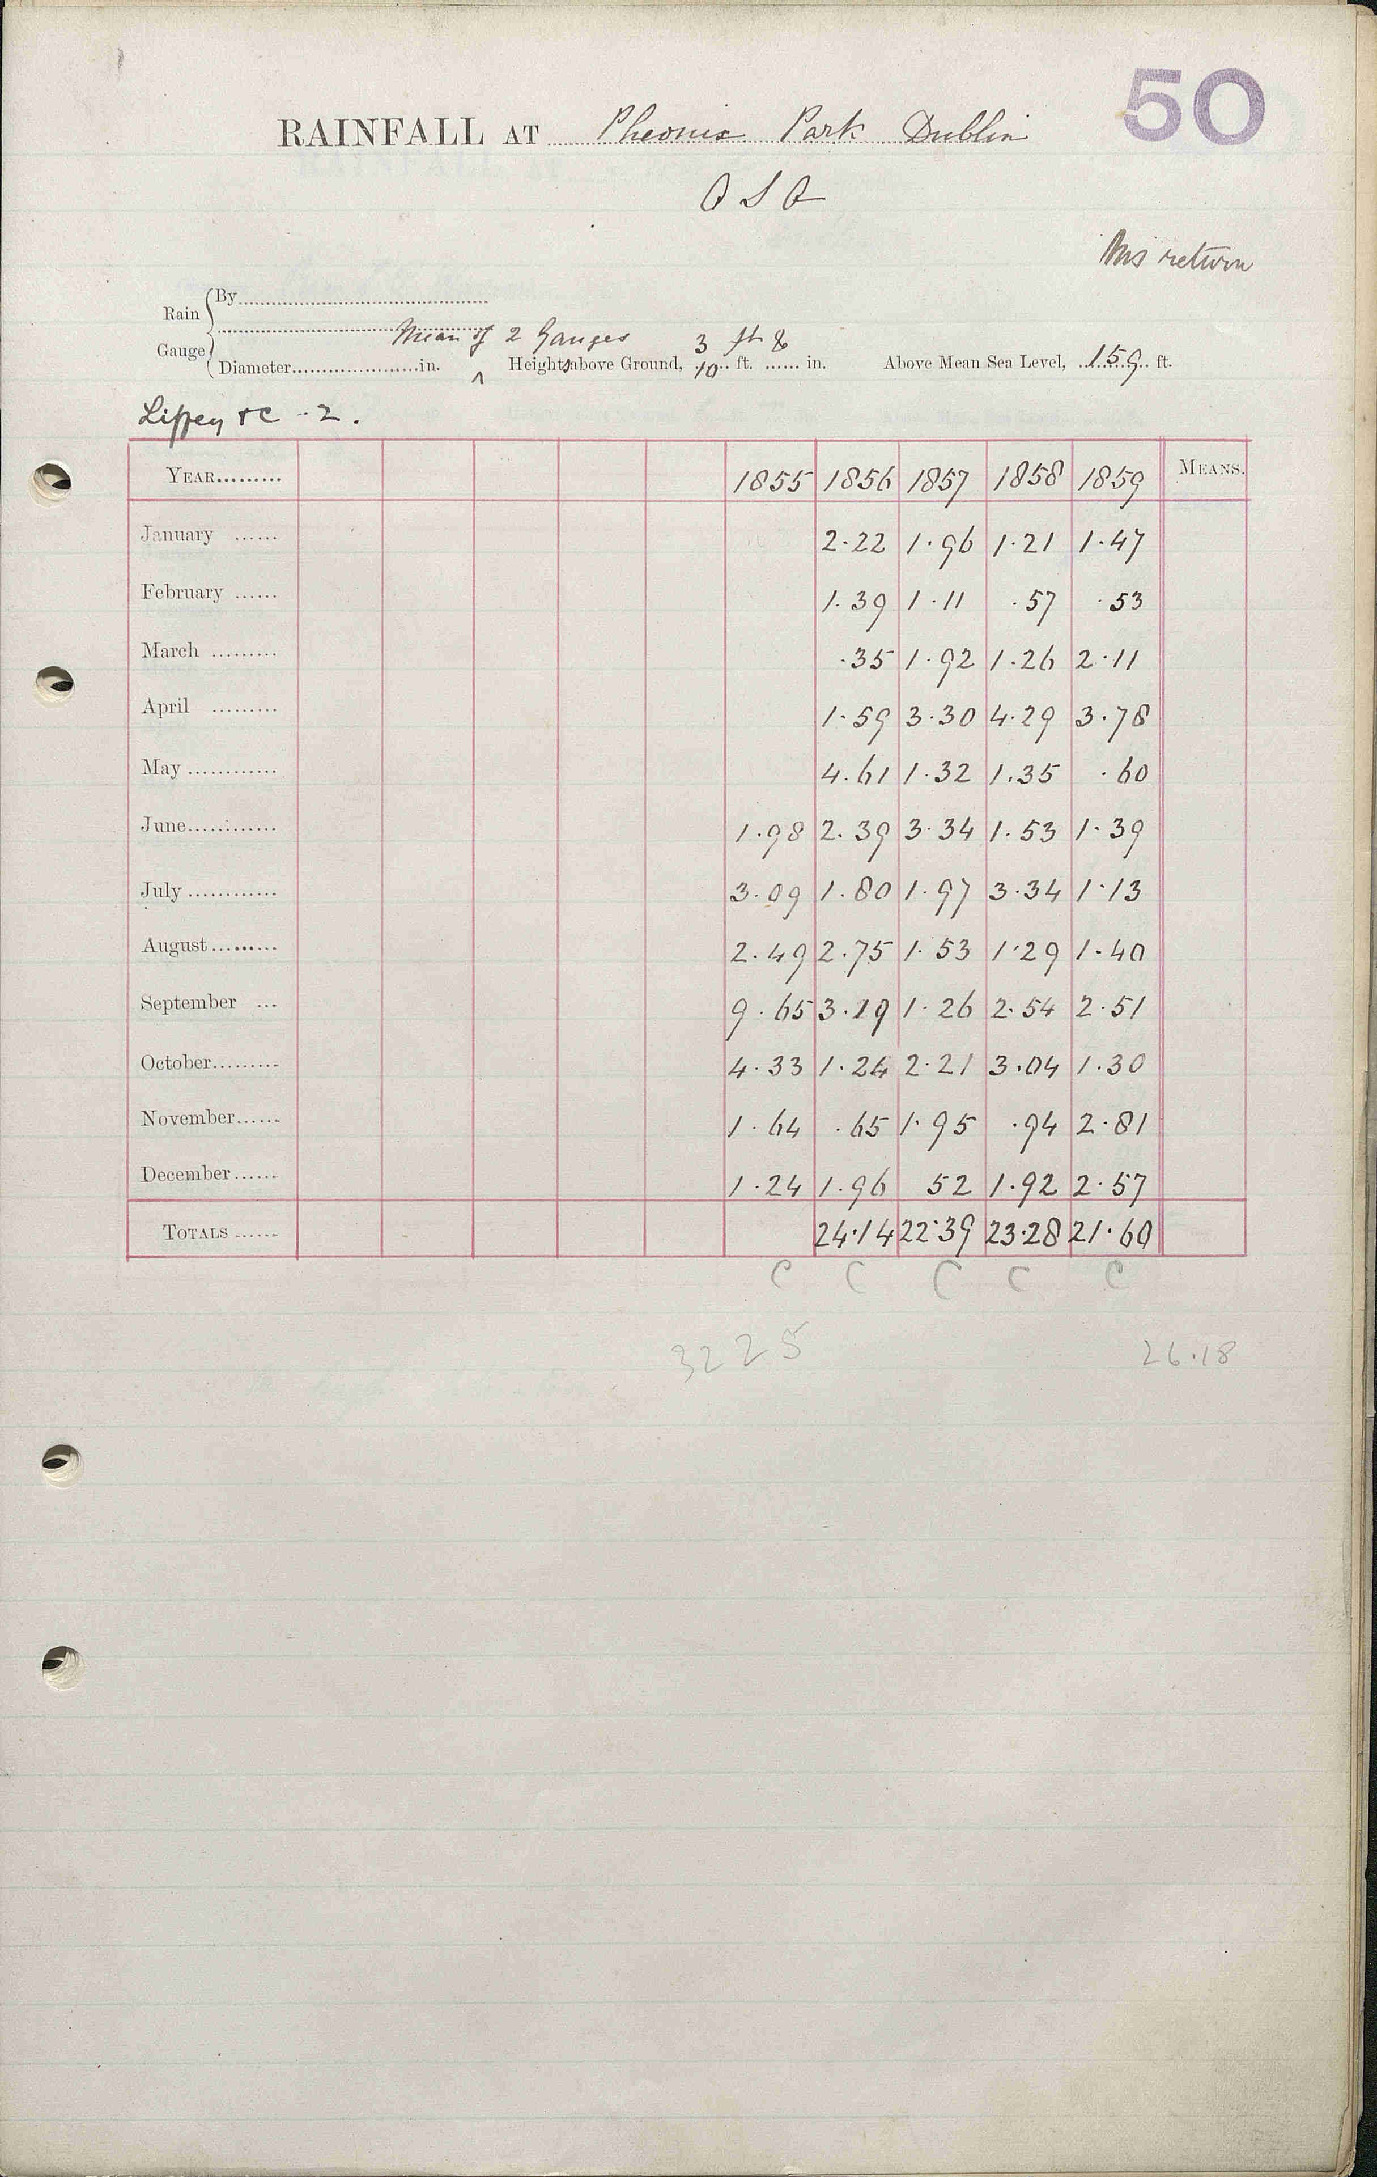 50
RAINFALL AT Pheonix Park Dublin
O S O
Ms return
Rain Gauge
By
Mean of 2 Gauges 3 ft &
Diameter in. ^ Heights above Ground, 10 ft. in. Above Mean Sea Level, 159 ft.
Liffey &c - 2.
YEAR 1855 1856 1857 1858 1859 MEANS.
January 2.22 1.96 1.21 1.47
February 1.39 1.11 .57 .53
March .35 1.92 1.26 2.11
April 1.59 3.30 4.29 3.78
May 4.61 1.32 1.35 .60
June 1.98 2.39 3.34 1.53 1.39
July 3.09 1.80 1.97 3.34 1.13
August 2.49 2.75 1.53 1.29 1.40
September 9.65 3.19 1.26 2.54 2.51
October 4.33 1.24 2.21 3.04 1.30
November 1.64 .65 1.95 .94 2.81
December 1.24 1.96 52 1.92 2.57
TOTALS 24.14 22.39 23.28 21.60
C C C C C
3225 26.18